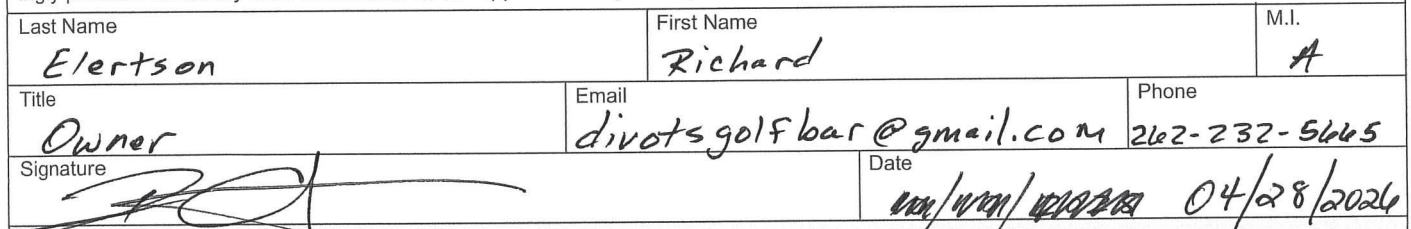 Last Name First Name M.I.
Elertson Richard A
Title Email Phone
Owner divotsgolfbar@gmail.com 262-232-5665
Signature Date
04/28/2026